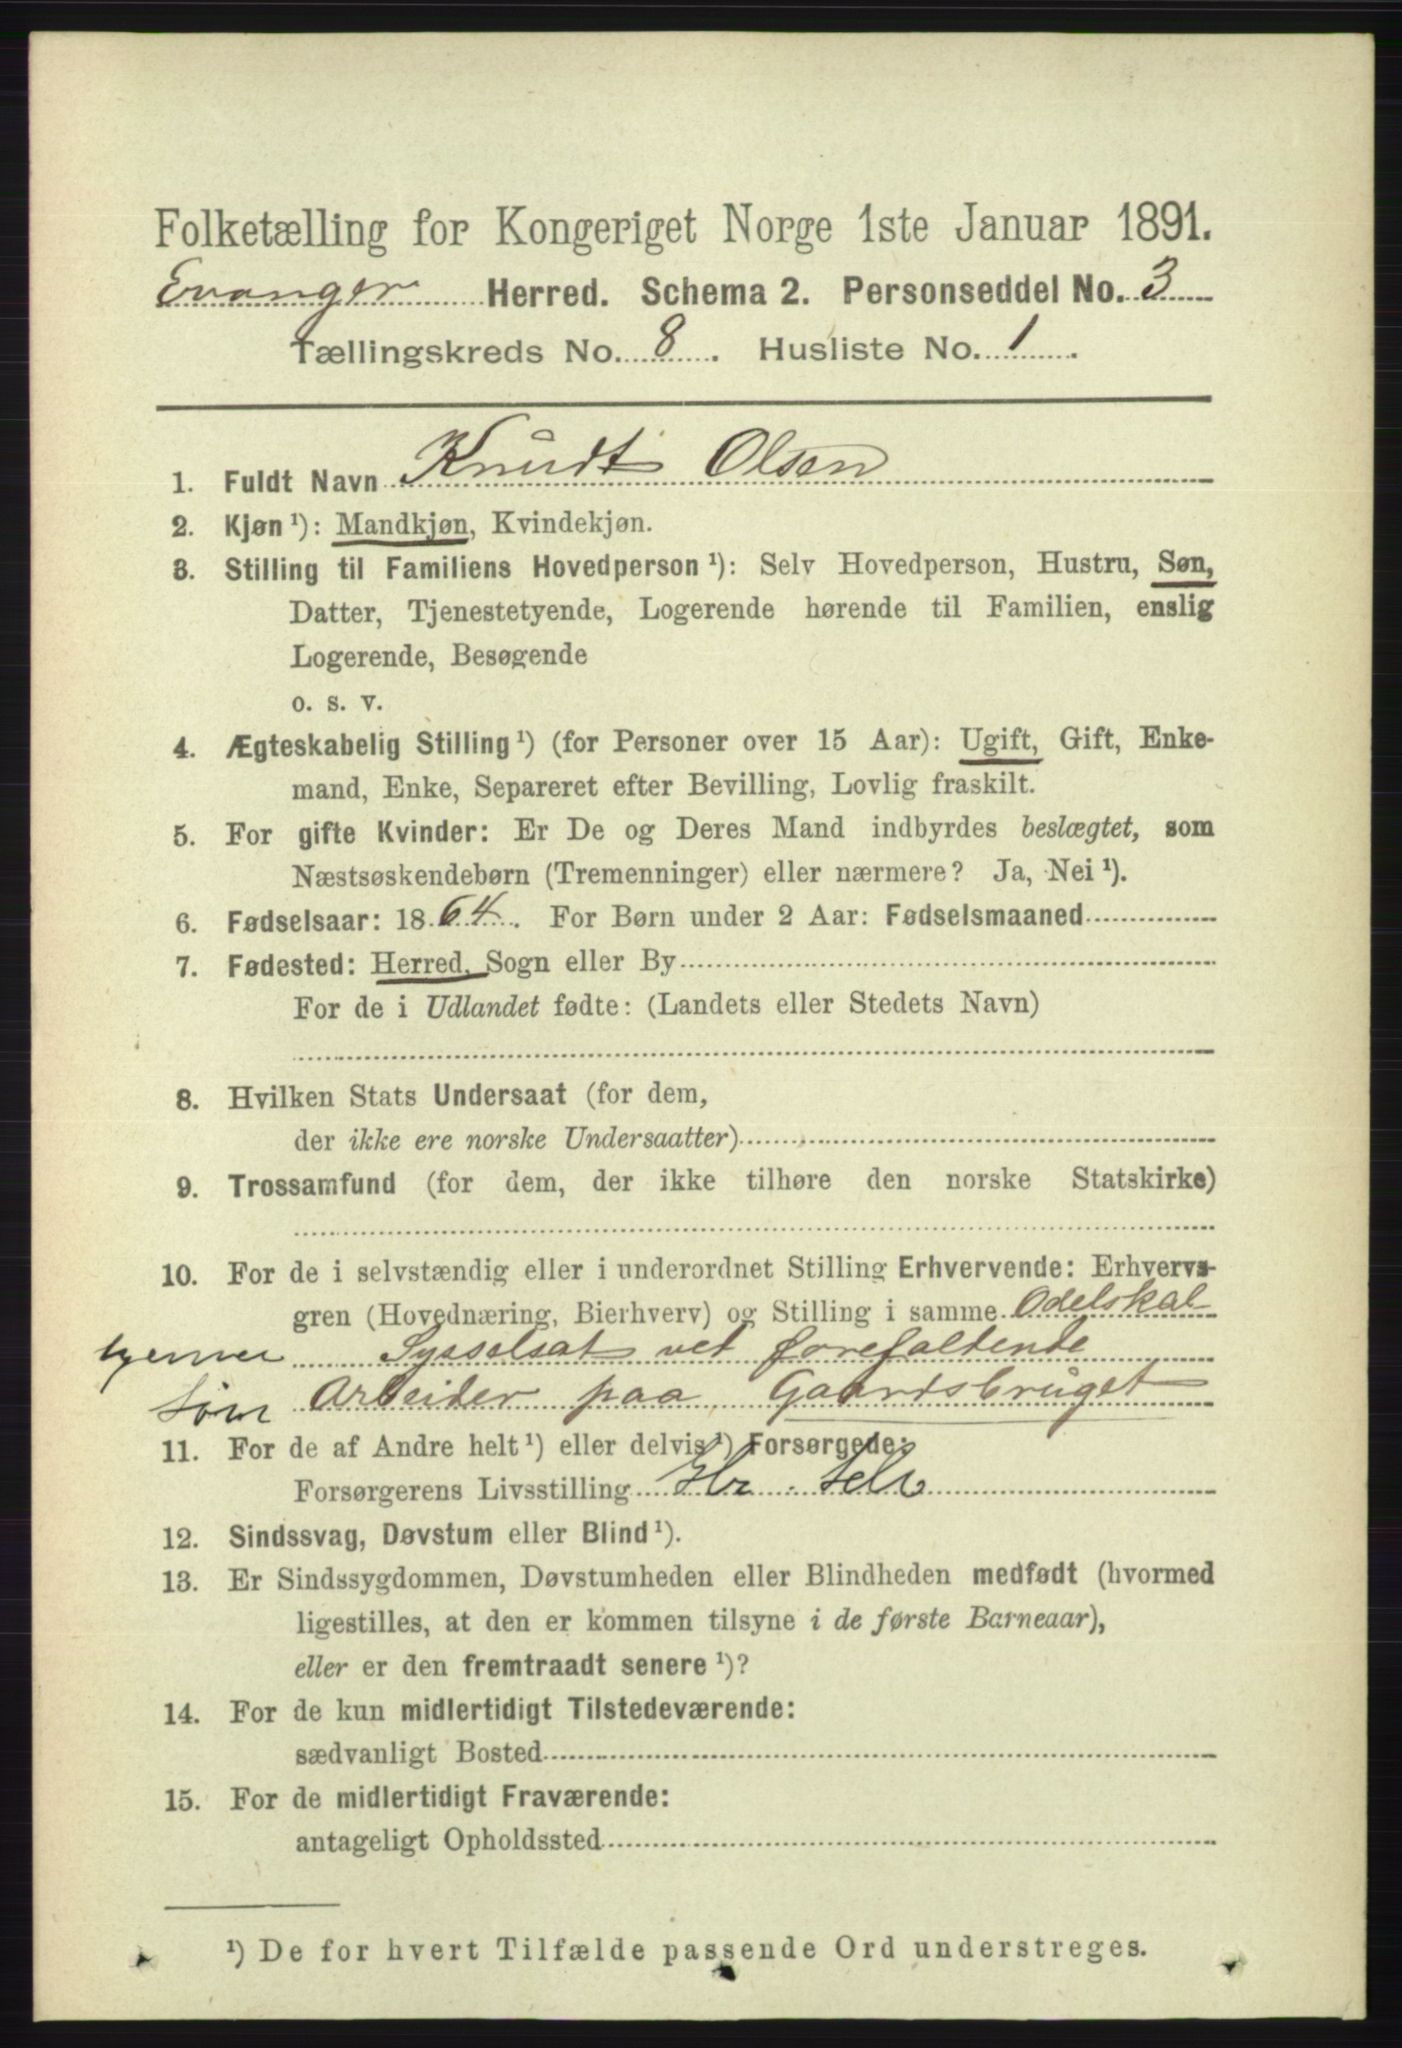 Folketælling for Kongeriget Norge 1ste Januar 1891.
Evanger Herred. Schema 2. Personseddel No. 3
Tællingskreds No. 8. Husliste No. 1.
1. Fuldt Navn Knudt Olsen
2. Kjøn ¹): Mandkjøn, Kvindekjøn.
3. Stilling til Familiens Hovedperson ¹): Selv Hovedperson, Hustru, Søn,
Datter, Tjenestetyende, Logerende hørende til Familien, enslig
Logerende, Besøgende
o. s. v.
4. Ægteskabelig Stilling ¹) (for Personer over 15 Aar): Ugift, Gift, Enke-
mand, Enke, Separeret efter Bevilling, Lovlig fraskilt.
5. For gifte Kvinder: Er De og Deres Mand indbyrdes beslægtet, som
Næstsøskendebørn (Tremenninger) eller nærmere? Ja, Nei ¹).
6. Fødselsaar: 1864. For Børn under 2 Aar: Fødselsmaaned
7. Fødested: Herred, Sogn eller By
For de i Udlandet fødte: (Landets eller Stedets Navn)
8. Hvilken Stats Undersaat (for dem,
der ikke ere norske Undersaatter)
9. Trossamfund (for dem, der ikke tilhøre den norske Statskirke)
10. For de i selvstændig eller i underordnet Stilling Erhvervende: Erhvervs-
gren (Hovednæring, Bierhverv) og Stilling i samme Odelskal
Sysselsat vet forefaldende
søn Arbeider paa Gaardsbruget
11. For de af Andre helt ¹) eller delvis ¹) Forsørgede:
Forsørgerens Livsstilling selv
12. Sindssvag, Døvstum eller Blind ¹).
13. Er Sindssygdommen, Døvstumheden eller Blindheden medfødt (hvormed
ligestilles, at den er kommen tilsyne i de første Barneaar),
eller er den fremtraadt senere ¹)?
14. For de kun midlertidigt Tilstedeværende:
sædvanligt Bosted
15. For de midlertidigt Fraværende:
antageligt Opholdssted
¹) De for hvert Tilfælde passende Ord understreges.